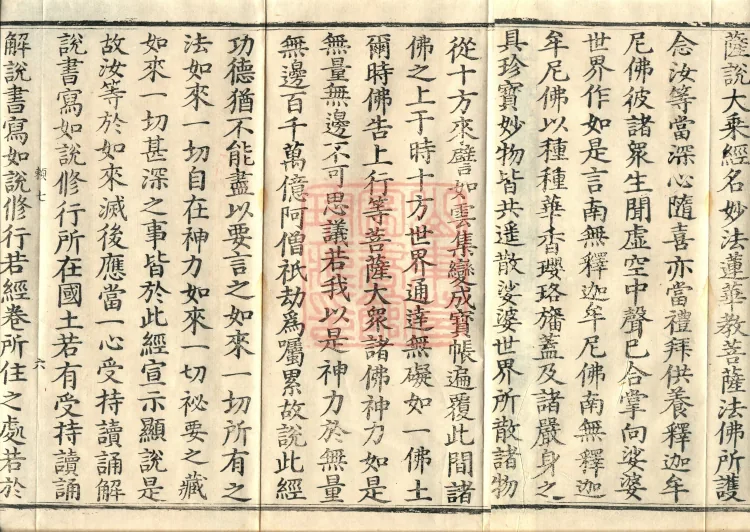 薩說大乘經名妙法蓮華教菩薩法佛所護
念汝等當深心隨喜亦當禮拜供養釋迦牟
尼佛彼諸眾生聞虛空中聲已合掌向娑婆
世界作如是言南無釋迦牟尼佛南無釋迦
牟尼佛以種種華香瓔珞旛蓋及諸嚴身之
具珍寶妙物皆共遥散娑婆世界所散諸物
從十方來譬如雲集變成寶帳遍覆此間諸
佛之上于時十方世界通達無礙如一佛土
爾時佛告上行等菩薩大眾諸佛神力如是
無量無邊不可思議若我以是神力於無量
無邊百千萬億阿僧祇劫為囑累故說此經
功德猶不能盡以要言之如來一切所有之
法如來一切自在神力如來一切祕要之藏
如來一切甚深之事皆於此經宣示顯說是
故汝等於如來滅後應當一心受持讀誦解
說書寫如說修行所在國土若有受持讀誦
類七 六
解說書寫如說修行若經卷所住之處若於